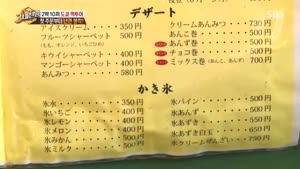 2박 10회 도쿄 먹투어
첫 주문부터 난관 봉착!
SBS
デザート
アイスクリーム 350円
フルーツシャーベット 500円
(もも、オレンジ、いちごなど)
キウイシャーベット 400円
マンゴーシャーベット 400円
あんみつ 580円
クリームあんみつ 700円
あんこ巻 500円
あんず巻 500円
チョコ巻 500円
ミックス巻 700円
かき氷
氷水 350円
氷いちご 400円
氷レモン 400円
氷メロン 400円
氷みかん 500円
氷ミルク 500円
氷パイン 500円
氷あんず 500円
氷あずき 500円
氷あずき白玉 650円
氷クリームぜんざい 730円